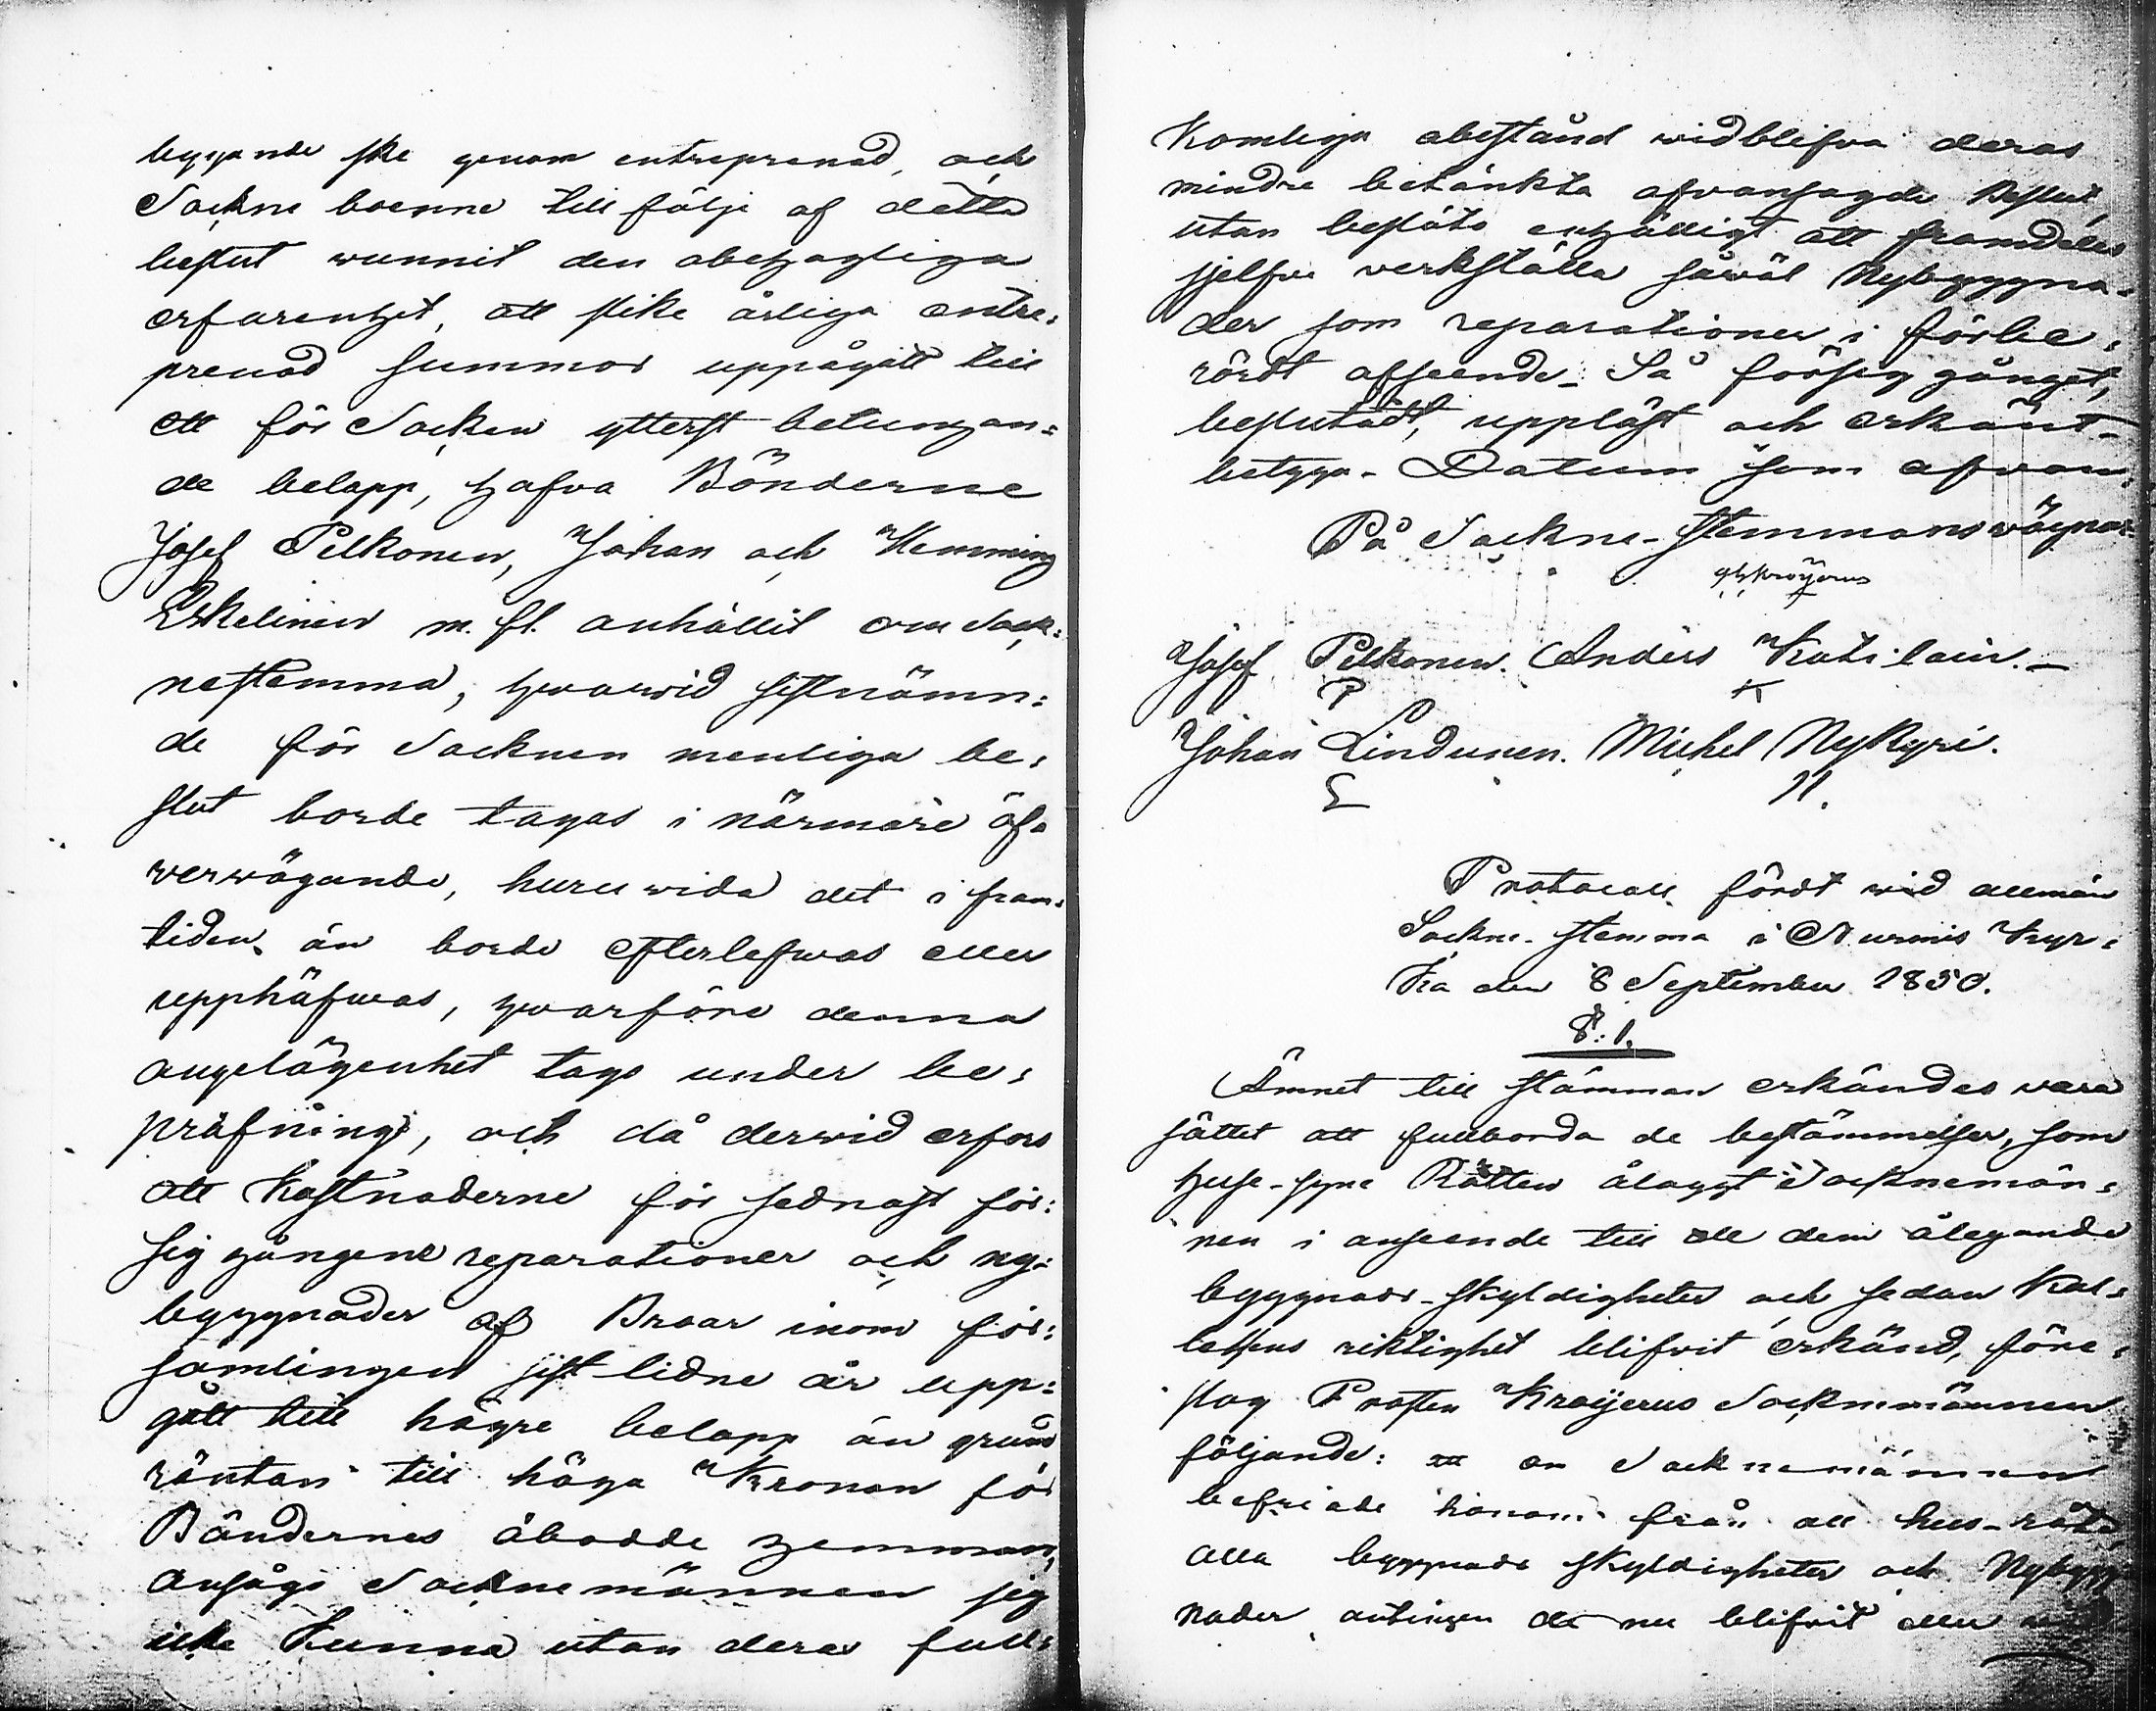 byggande ske genom entreprenad, och
Sockne boerne till följe af detta
beslut wunnit den obehagliga
erfarenhet, att slike årliga entre:
prenad summor uppågått till
ett för Socken ytterst betungan:
de belopp, hafva Bönderne
Josef Pelkonen, Johan och Hemming
Eskelinen m. fl. anhållit om Sock:
nestemma, hvarwid sistnämn:
de för Socknen menliga be:
slut borde tagas i närmare öf:
verwägande, huruwida det i fram:
tiden än borde efterlefwas eller
upphäfwas, hvarföre denna
angelägenhet togs under be:
pröfning, och då derwid erfors
att Kostnaderne för sednast för:
sig gångene reparationer och ny:
byggnader af Broar inom för:
samlingen sistlidne år upp:
gått till högre belopp än grund
räntan till höga Kronan för
Böndernes åbodde hemman,
ansågo Socknemännen sig
icke Kunna utan deras full:
Komliga obestånd widblifva deras
mindre betänkta ofvansagde Beslut,
utan beslöts enhälligt att framdeles
sjelfve verkställa såwäl Nybyggna:
der som reparationer i förbe:
rördt afseende. Så försig gånget,
beslutadt, uppläst och erkändt
betyga. Datum som ofvan.
På Sockne-stemmans wägnar
Josef Pelkonen. Anders Katilain.
P K
Johan Lindunen. Michel Nykyri.
L N.
Protocoll fördt wid allmän
Sockne-stemma i Nurmis Kyr:
ka den 8 September 1850.
§. 1.
Ämnet till stämman erkändes vara
sättet att fullborda de bestämmelser, som
huse-syne Rätten ålaggt Socknemän:
nen i anseende till de dem åliggande
byggnads-skyldigheter och sedan Kal:
lelsens riktighet blifvit erkänd, före:
slog Prosten Krøijerus Socknemännen
följande: att om Socknemännen
befriade honom från all hus-röte,
alla byggnads skyldigheter och Nybygg
nader, antingen de nu blifvit eller